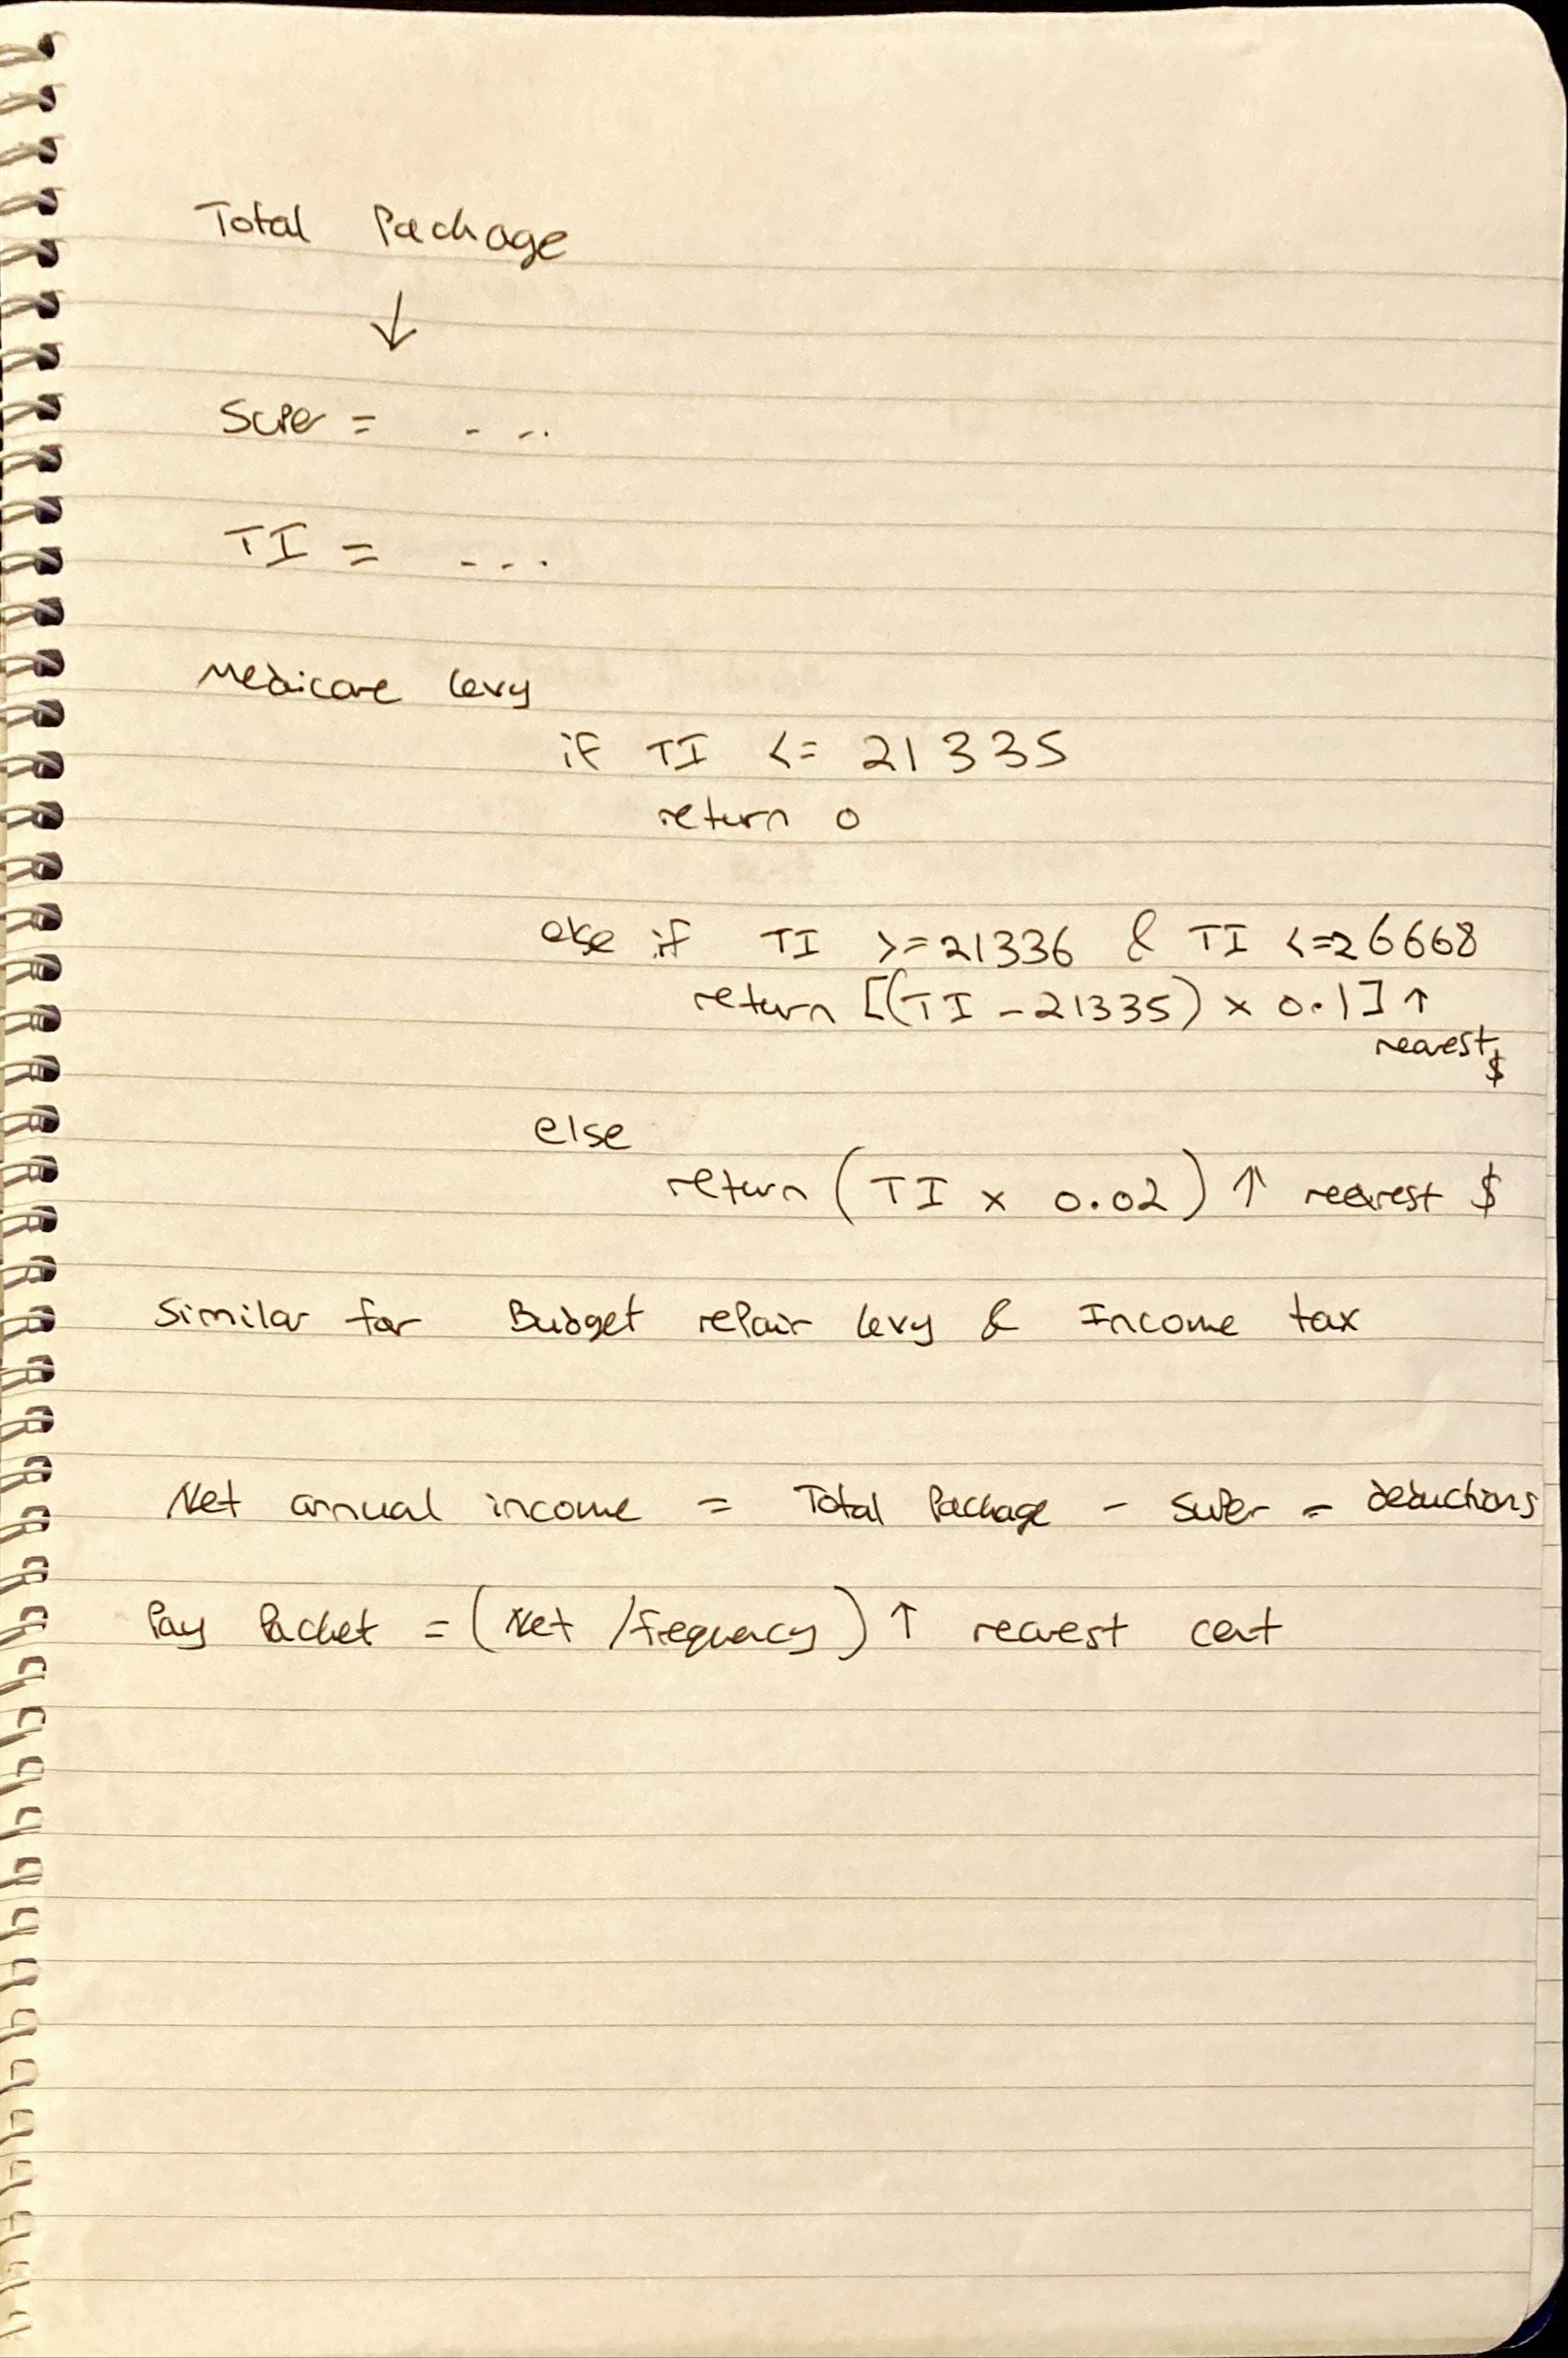 Total Package
↓
Super = - - ..
TI = - - - .
Medicare levy
if TI <= 21335
return 0
else if TI >=21336 & TI <=26668
return [(TI - 21335) x 0.1] ↑
nearest $
else
return (TI x 0.02) ↑ nearest $
Similar for Budget repair levy & Income tax
Net annual income = Total Package - Super - deductions
Pay Packet = (Net /frequency) ↑ nearest cent